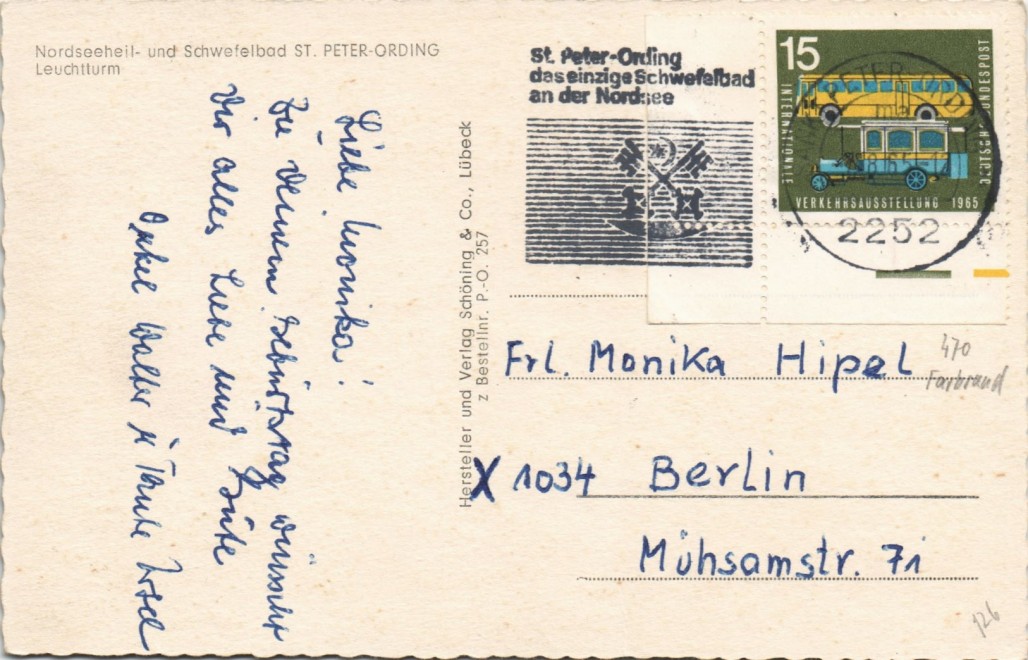 Nordseeheil- und Schwefelbad ST. PETER-ORDING
Leuchtturm
Liebe Monika!
Zu deinem Geburtstag wünscht
Dir alles Liebe und Gute
Onkel Walter u Tante
Hersteller und Verlag Schöning & Co., Lübeck
z Bestellnr. P.-O. 257
St. Peter-Ording
das einzige Schwefelbad
an der Nordsee
15
INTERNATIONALE
VERKEHRSAUSSTELLUNG 1965
DEUTSCHE BUNDESPOST
2252
Frl. Monika Hipel
470
Farbrand
X 1034 Berlin
Mühsamstr. 71
126